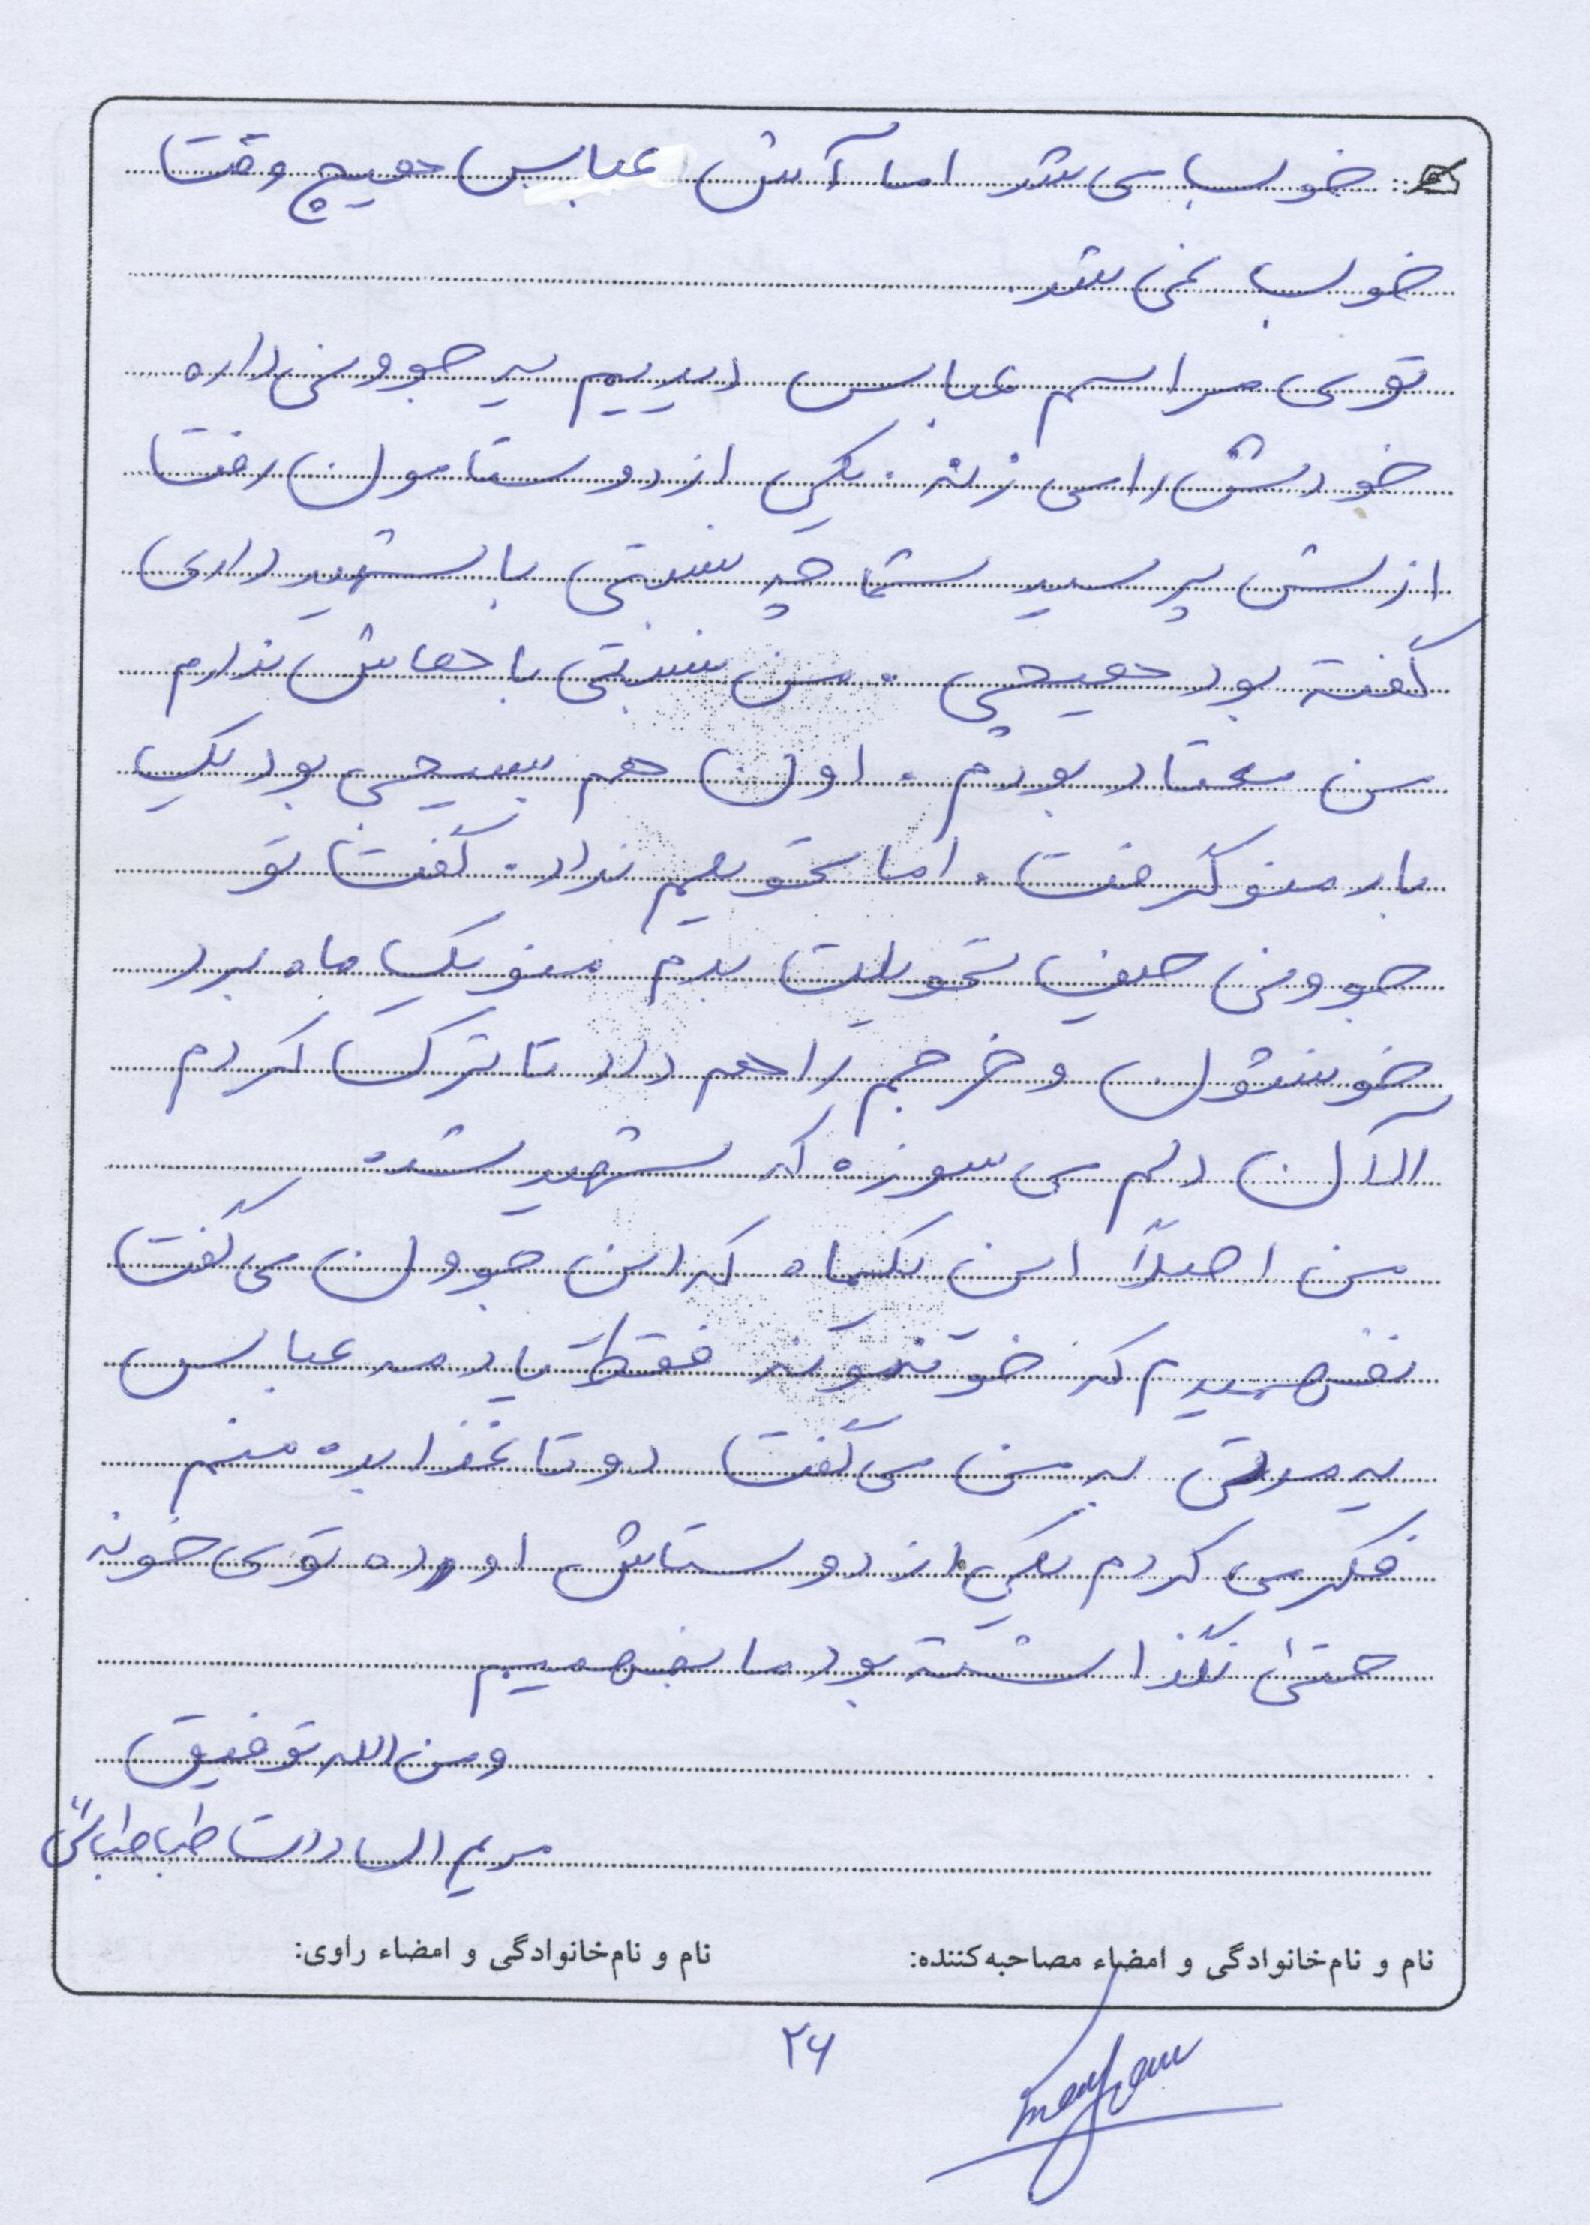 خوب می شد اما آش عباس هیچ وقت
خوب نمی شد.
توی مراسم عباس دیدیم یه جوونی داره
خودش را می زنه. یکی از دوستامون رفت
ازش پرسید شما چه نسبتی با شهید داری
گفته بود هیچی. من نسبتی باهاش ندارم
من معتاد بودم. اون هم بسیجی بود یک
بار منو گرفت. اما تحویلم نداد. گفت تو
جوونی حیف تحویلت بدم منو یک ماه برد
خونشون و خرجم را هم داد تا ترک کردم
الآن دلم می سوزه که شهید شد.
من اصلاً این یکماه که این جوون می گفت
نفهمیدم که خونمونه فقط یادمه عباس
یه مدتی به من می گفت دو تا غذا بده منم
فکر می کردم یکی از دوستاش اورده توی خونه
حتی نگذاشته بود ما بفهمیم
ومن الله توفیق
مریم السادات طباطبائی
نام و نام‌خانوادگی و امضاء مصاحبه‌کننده: نام و نام‌خانوادگی و امضاء راوی:
۲۶